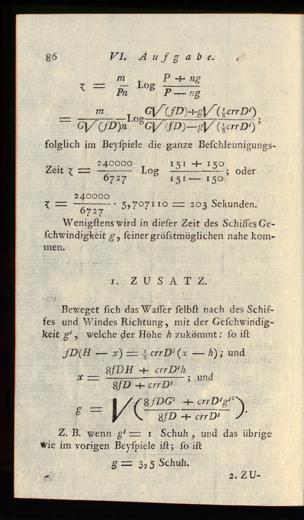 86 VI. Aufgabe.
τ = m/Pn Log (P + ng)/(P — ng)
= m/(G√(fD)n) Log (G√(fD)+g√(⅛crrD'))/(G√(fD)—g√(⅛crrD'));
folglich im Beyſpiele die ganze Beſchleunigungs-
Zeit τ = 240000/6727 Log (151 + 150)/(151 — 150); oder
τ = 240000/6727 · 5,707110 = 203 Sekunden.
Wenigſtens wird in dieſer Zeit des Schiffes Ge-
ſchwindigkeit g, ſeiner gröſstmöglichen nahe kom-
men.
1. ZUSATZ.
Beweget ſich das Waſſer ſelbſt nach des Schif-
fes und Windes Richtung, mit der Geſchwindig-
keit g', welche der Höhe h zukömmt: ſo iſt
fD(H — x) = ⅛crrD'(x — h); und
x = (8fDH + crrD'h)/(8fD + crrD'); und
g = √((8fDG² + crrD'g'²)/(8fD + crrD')).
Z. B. wenn g' = 1 Schuh, und das übrige
wie im vorigen Beyſpiele iſt; ſo iſt
g = 3,5 Schuh.
2. ZU-